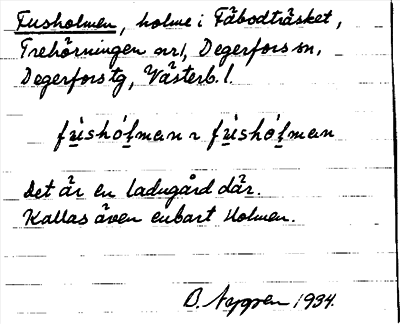 Fusholmen, holme i Fäbodträsket,
Trehörningen nr 1, Degerfors sn,
Degerfors tg, Västerb. l.
Det är en ladugård där.
Kallas även enbart Holmen.
1934.